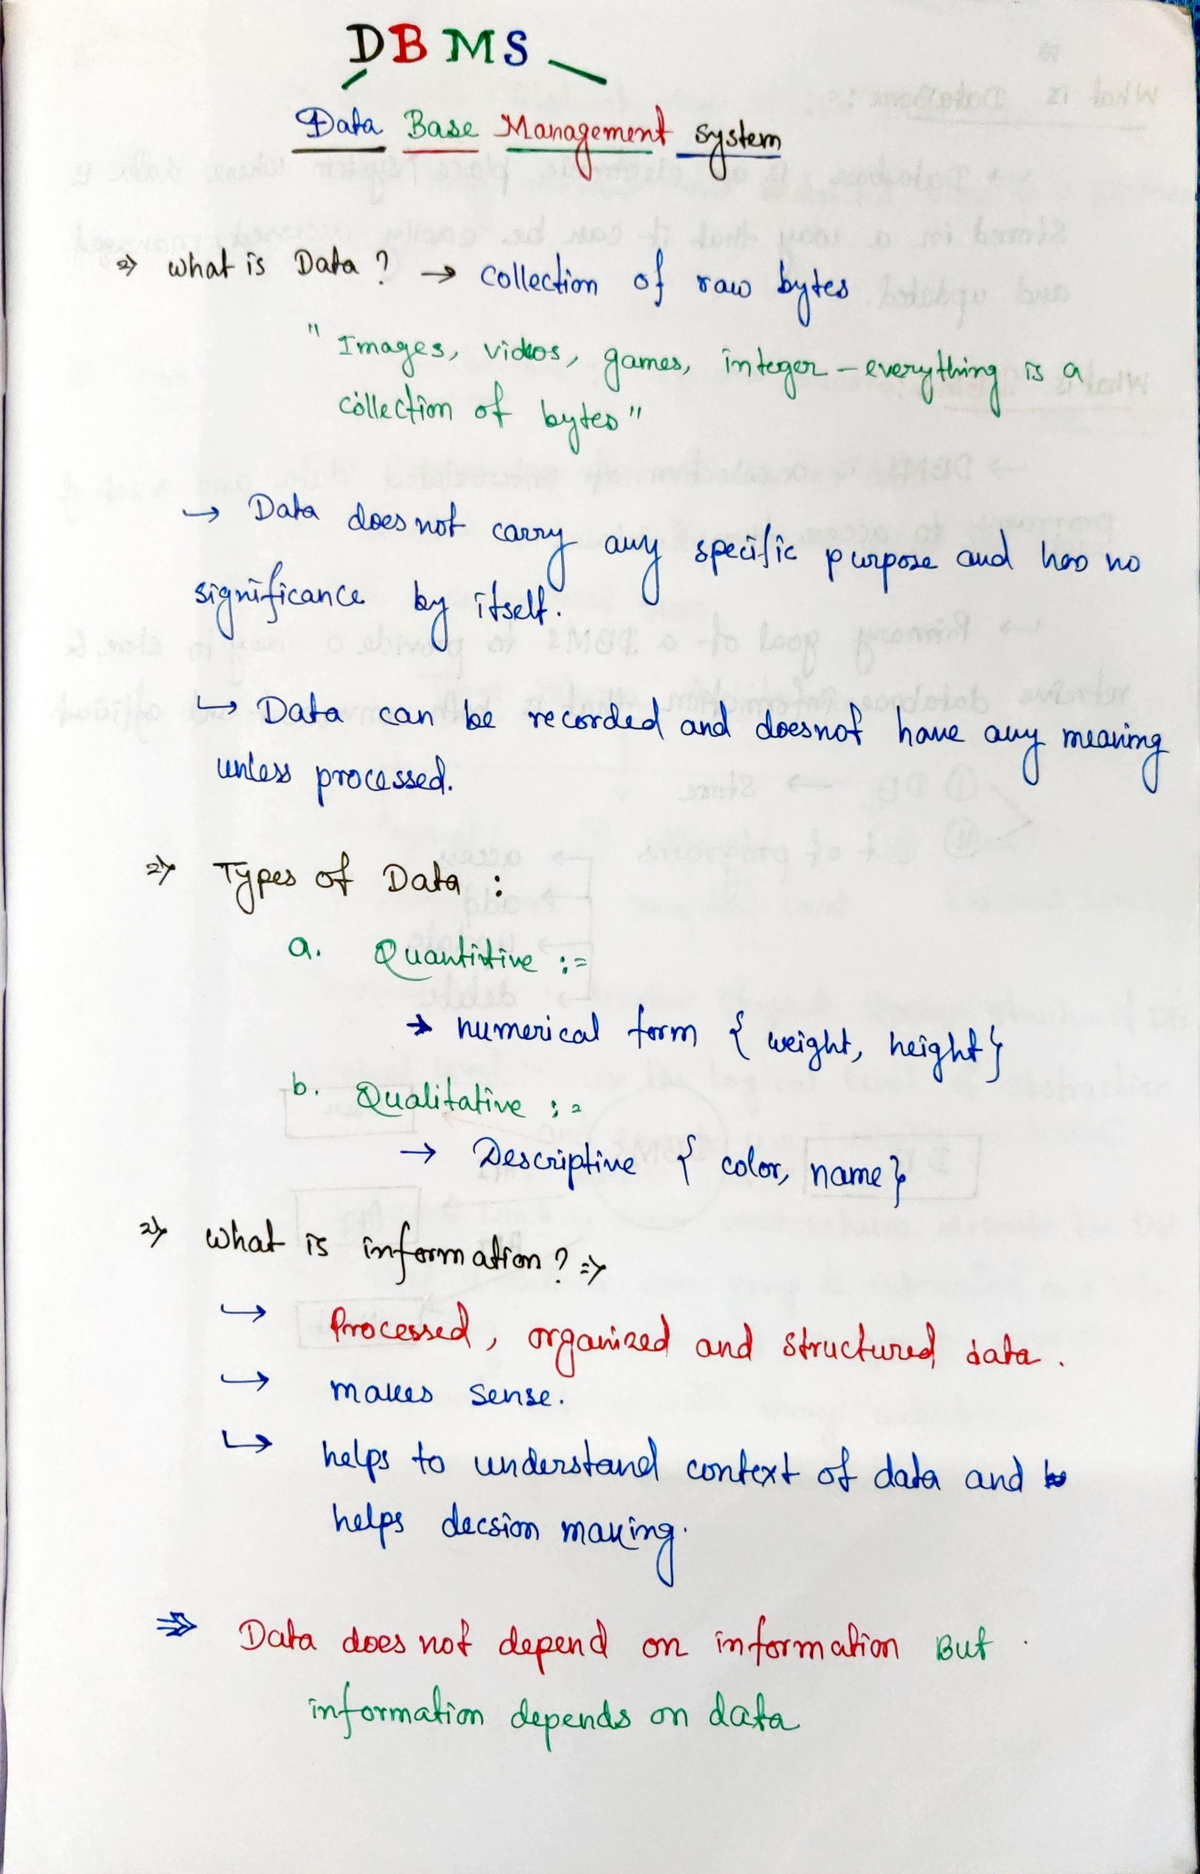 DBMS
Data Base Management System
=> what is Data? → collection of raw bytes
"Images, videos, games, integer – everything is a
collection of bytes"
↪ Data does not carry any specific purpose and has no
significance by itself.
↪ Data can be recorded and doesnot have any meaning
unless processed.
=> Types of Data :
a. Quantitive :=
→ numerical form { weight, height}
b. Qualitative :=
→ Descriptive { color, name}
=> what is information? =>
↪ Processed, organized and structured data.
↪ makes sense.
↪ helps to understand context of data and
helps decsion making.
=> Data does not depend on information But
information depends on data